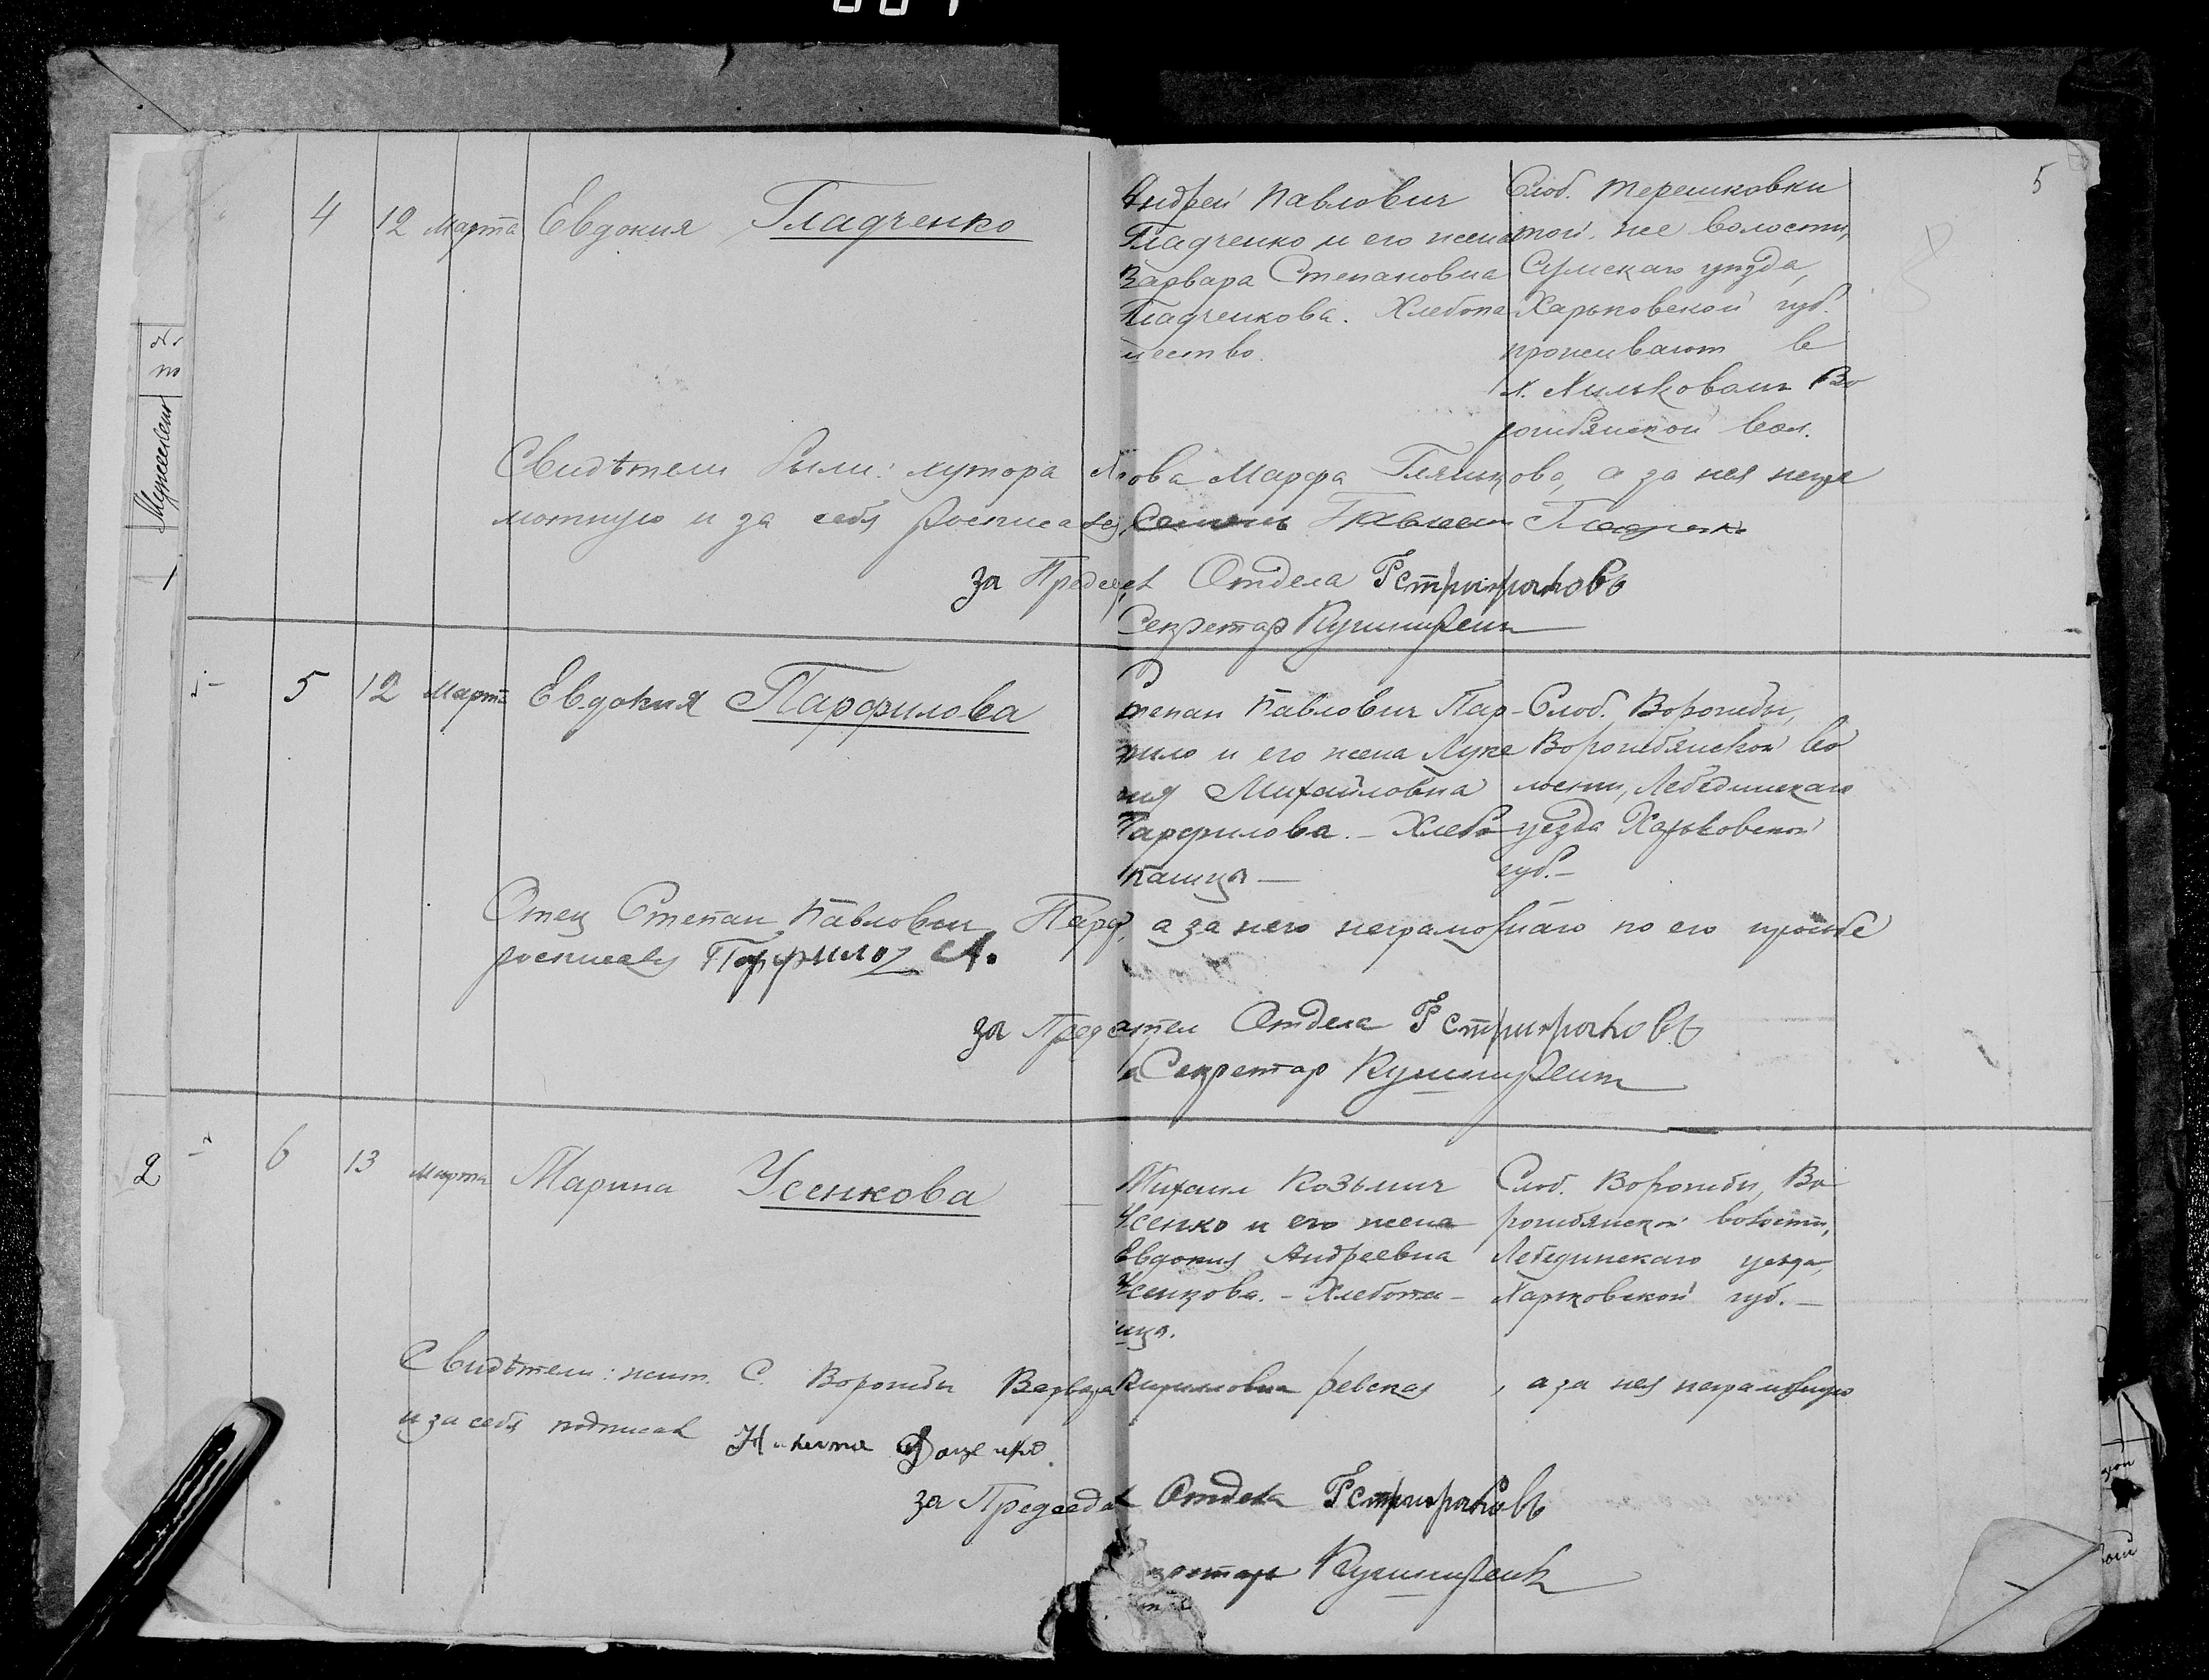 5
4 12 Марта Евдокия Гладченко
Андрей Павлович
Гладченко и его жена
Варвара Степановна
Гладченкова. Хлебопа
шество.
Слоб. Терешковки
той же волости,
Сумскаго уезда,
Харьковской губ.
проживают в
х. Хильковом Во
рожбянской вол.
Свидѣтели были: хутора Марфа а за нея негра
мотную и за себя росписался
за Председ Отдела
Секретар
5 12 Марта Евдокия Парфилова
Степан Павлович Пар-
фило и его жена Луке
рия Михайловна
Парфилова. - Хлебо
пашцы -
Слоб. Ворожбы,
Ворожбянской во
лости, Лебединскаго
уезда Харьковской
губ. -
Отец Степан Павлович Парф, а за него неграмотнаго по его просьбе
росписался Парфило
за Председател Отдела
Секретар
2 6 13 Марта Марина Усенкова
Михаил Козьмич
Усенко и его жена
Евдокия Андреевна
Усенкова. - Хлебопа-
шцы.
Слоб. Ворожбы, Во
рожбянской волости,
Лебединскаго уезда,
Харьковской губ. -
Свидѣтели: жит. С. Ворожбы Варвара Кирилловна , а за нея неграмотную
и за себя подписал Никита
за Председат Отдела
№
по
Мужескаго